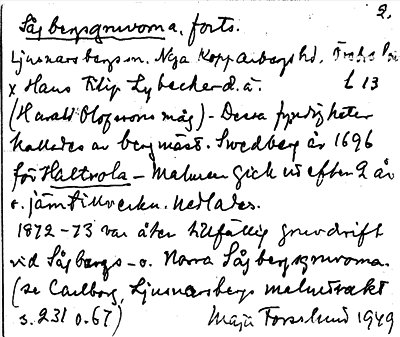 2.
Sågbergsgruvorna, forts.
Ljusnarsbergs sn. Nya Kopparbergs hd.
x Hans Filip Lybecker d.ä. L 13
(Harald Olofssons måg) – Dessa fyndigheter
kallades av bergmäst. Swedberg år 1696
för Haltrola – Malmen gick ut efter 2 år
o. järntillverkn. nedlades.
1872–73 var åter tillfällig gruvdrift
vid Sågbergs- o. Norra Sågbergsgruvorna.
(se Carlborg, Ljusnarsbergs malmtrakt
s. 231 o. 67) Maja Forsslund 1949